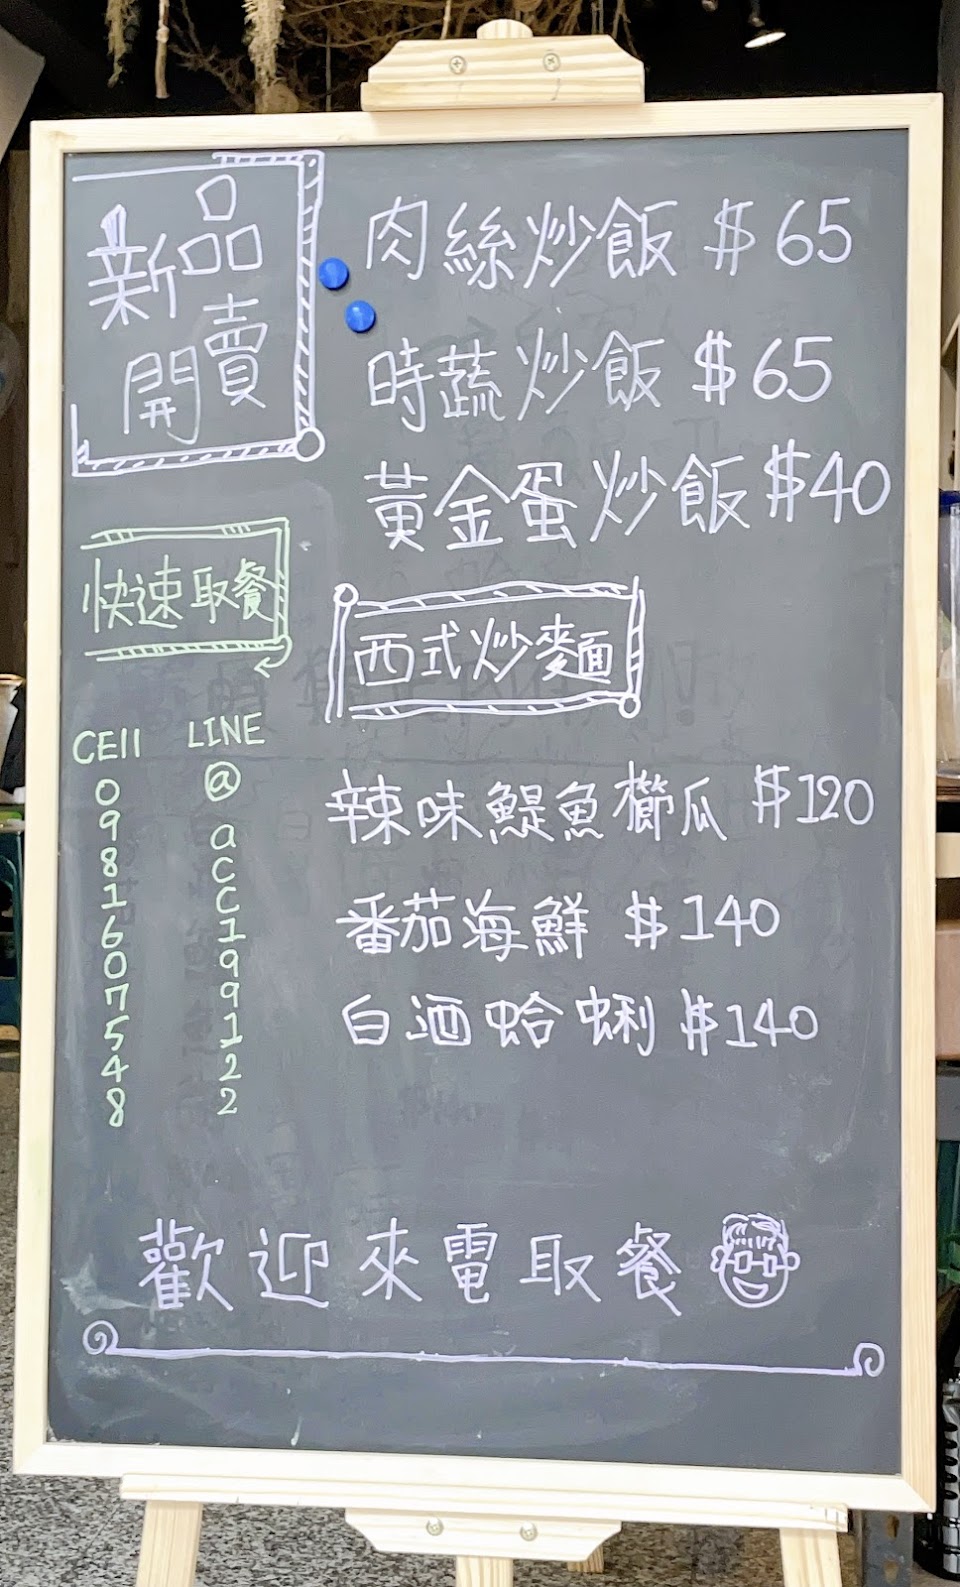 新品
開賣
肉絲炒飯 $65
時蔬炒飯 $65
黃金蛋炒飯 $40
快速取餐
CEll
0981607548
LINE
@acc199122
西式炒麵
辣味鯷魚櫛瓜 $120
番茄海鮮 $140
白酒蛤蜊 $140
歡迎來電取餐